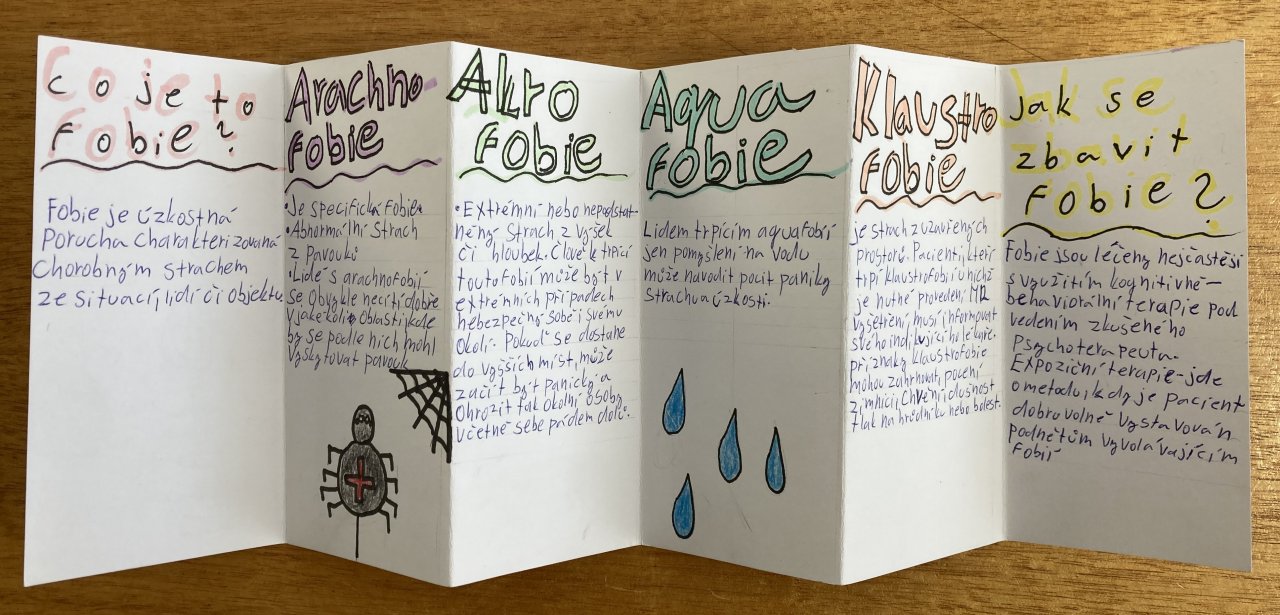 Co je to
fobie?
Fobie je úzkostná
porucha charakterizovaná
chorobným strachem
ze situací, lidí či objektu
Arachno-
fobie
•Je specifická fobie.
•Abnormální strach
z pavouků
•Lidé s arachnofobií
se obvykle necítí dobře
v jakékoliv oblasti, kde
by se podle nich mohl
vyskytovat pavouk
Akro
fobie
•Extrémní nebo nepodstat-
něný strach z výšek
či hloubek. Člověk trpící
touto fobií může být v
extrémních případech
nebezpečný sobě i svému
okolí. Pokud se dostane
do vyšších míst, může
začít být panický a
ohrozit tak okolní osoby
včetně sebe pádem dolů.
Aqua
fobie
Lidem trpícím aquafobií
jen pomyšlení na vodu
může navodit pocit paniky
strachu a úzkosti.
Klaustro
fobie
je strach z uzavřených
prostorů. Pacienti, kteří
trpí klaustrofobií u nichž
je nutné provedení MR
vyšetření, musí informovat
svého indikujícího lékaře.
příznaky klaustrofobie
mohou zahrnovat, pocení
zimnici, chvění, dušnost
tlak na hrudníku nebo bolest.
Jak se
zbavit
fobie?
Fobie jsou léčeny nejčastěsi
s využitím kognitivně-
behaviorální terapie pod
vedením zkušeného
psychoterapeuta.
Expoziční terapie - jde
o metodu, kdy je pacient
dobrovolně vystavován
podnětům vyvolávajícím
fobii